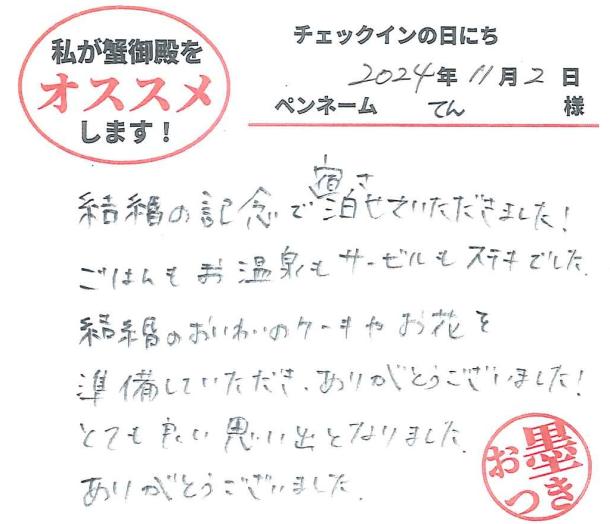 私が蟹御殿を
オススメ
します！
チェックインの日にち
2024年11月2日
ペンネーム てん 様
結婚の記念で宿泊させていただきました！
ごはんもお温泉もサービルもステキでした。
結婚のおいわいのケーキやお花を
準備していただき、ありがとうございました！
とても良い思い出となりました。
ありがとうございました。
お墨つき